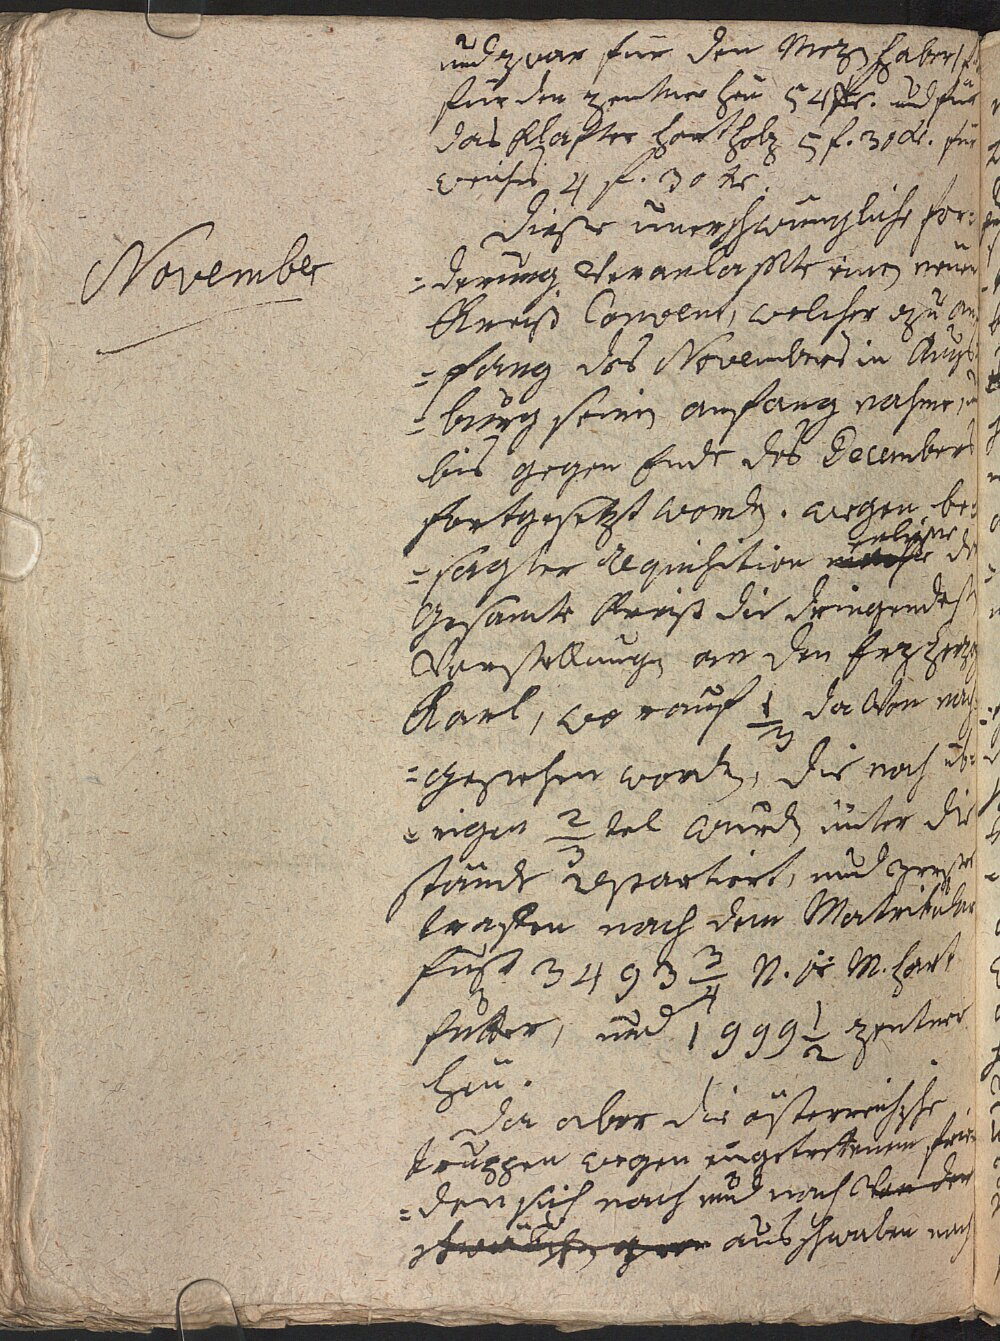 und zwar für den Mezen Haber 
für den Zentner Heu 54 kr. und für
das Klafter hart Holz 5 f. 30 kr. für
weiches 4 f. 30 kr.
November
Diese unerschwingliche For=
=derung veranlaßte einen neuen
Kreiß Convent, welcher zu An
=fang des Novembers in Augs
=burg seinen anfang nahme,
bis gegen Ende des Decembers
fortgesetzt worden. wegen be=
=sagter Requisition
Gesamte Kreiß die dringendest
Vorstellung an den Erzherzog
Karl, worauf 1/3 davon nach
=gesehen worden, die noch üb=
=rigen 2/3 tel wurden unter die
Stände repartiert, und
traffen nach dem Matrikular
fuß 3493 3/4 N. Ö. M. hart
futter, und 1999 1/2 Zentner
Heu.
Da aber die österreichische
Truppen wegen eingetrettenem frie
=den sich nach und nach von der
aus Schwaben nach